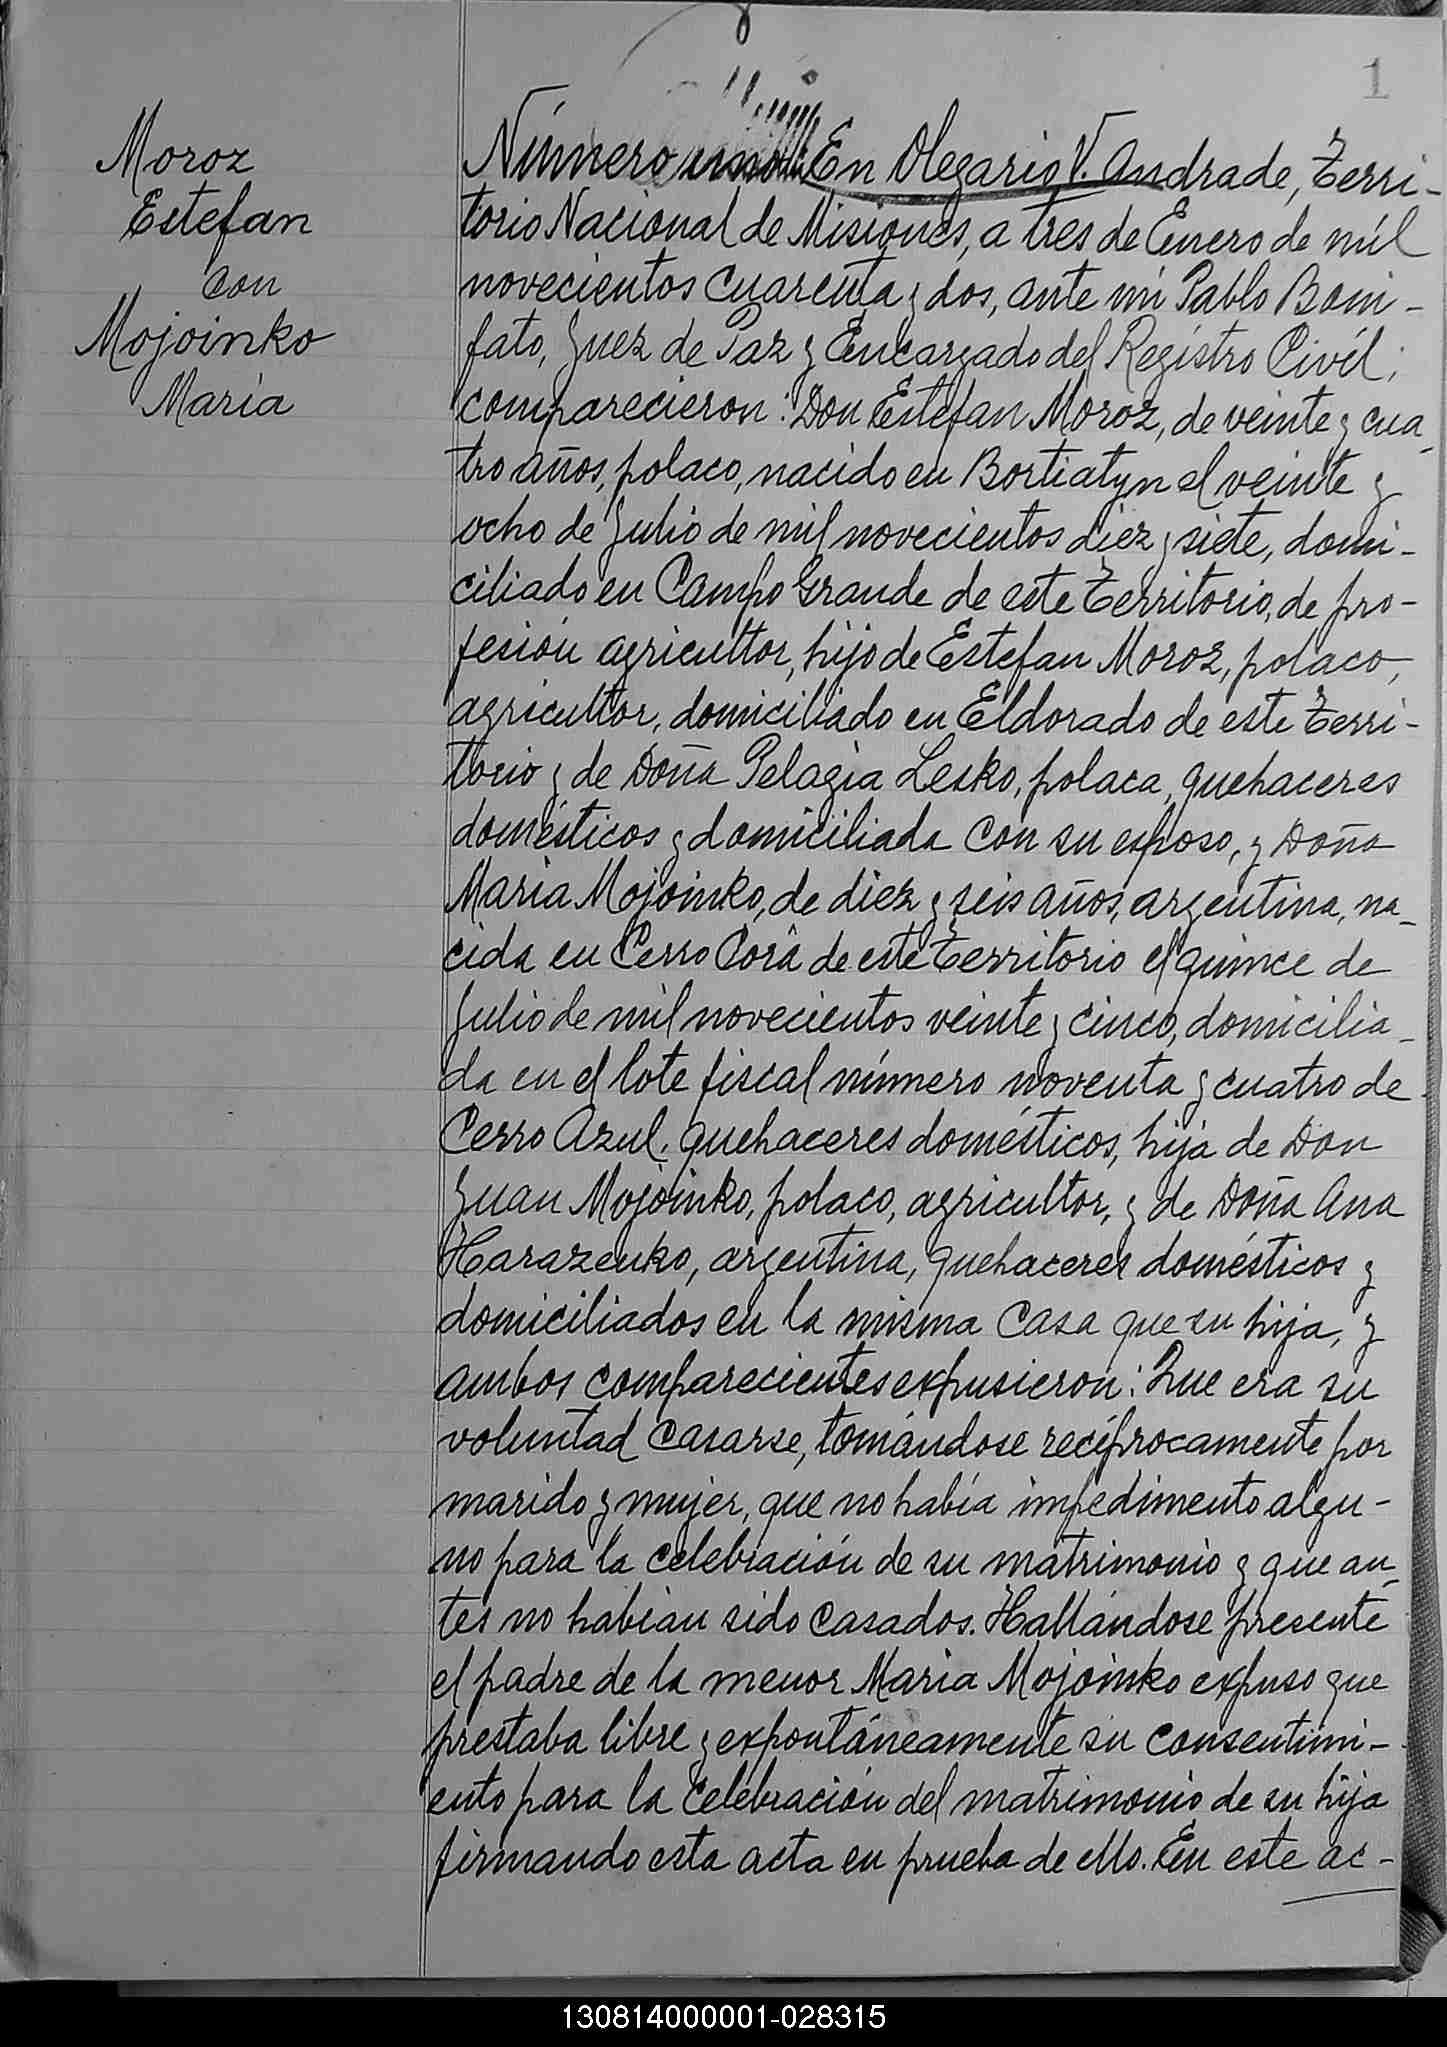 1
Moroz
Estefan
con
Mojoinko
María
Número uno: En Olegario V. Andrade, Terri-
torio Nacional de Misiones, a tres de Enero de mil
novecientos cuarenta y dos, ante mi Pablo Boni-
fato, Juez de Paz y Encargado del Registro Civil;
comparecieron: Don Estefan Moroz, de veinte y cua-
tro años, polaco, nacido en Bortiatyn el veinte y
ocho de Julio de mil novecientos diez y siete, domi-
ciliado en Campo Grande de este Territorio, de pro-
fesión agricultor, hijo de Estefan Moroz, polaco,
agricultor, domiciliado en Eldorado de este Terri-
torio y de Doña Pelagia Lesko, polaca, quehaceres
domésticos y domiciliada con su esposo, y Doña
María Mojoinko, de diez y seis años, argentina, na-
cida en Cerro Corá de este Territorio el quince de
Julio de mil novecientos veinte y cinco, domicilia-
da en el lote fiscal número noventa y cuatro de
Cerro Azul, quehaceres domésticos, hija de Don
Juan Mojoinko, polaco, agricultor, y de Doña Ana
Harazenko, argentina, quehaceres domésticos y
domiciliados en la misma casa que su hija, y
ambos comparecientes expusieron: Que era su
voluntad casarse, tomándose recíprocamente por
marido y mujer, que no había impedimento algu-
no para la celebración de su matrimonio y que an-
tes no habían sido casados. Hallándose presente
el padre de la menor María Mojoinko expuso que
prestaba libre y expontáneamente su consentimi-
ento para la celebración del matrimonio de su hija
firmando esta acta en prueba de ello. En este ac-
130814000001-028315